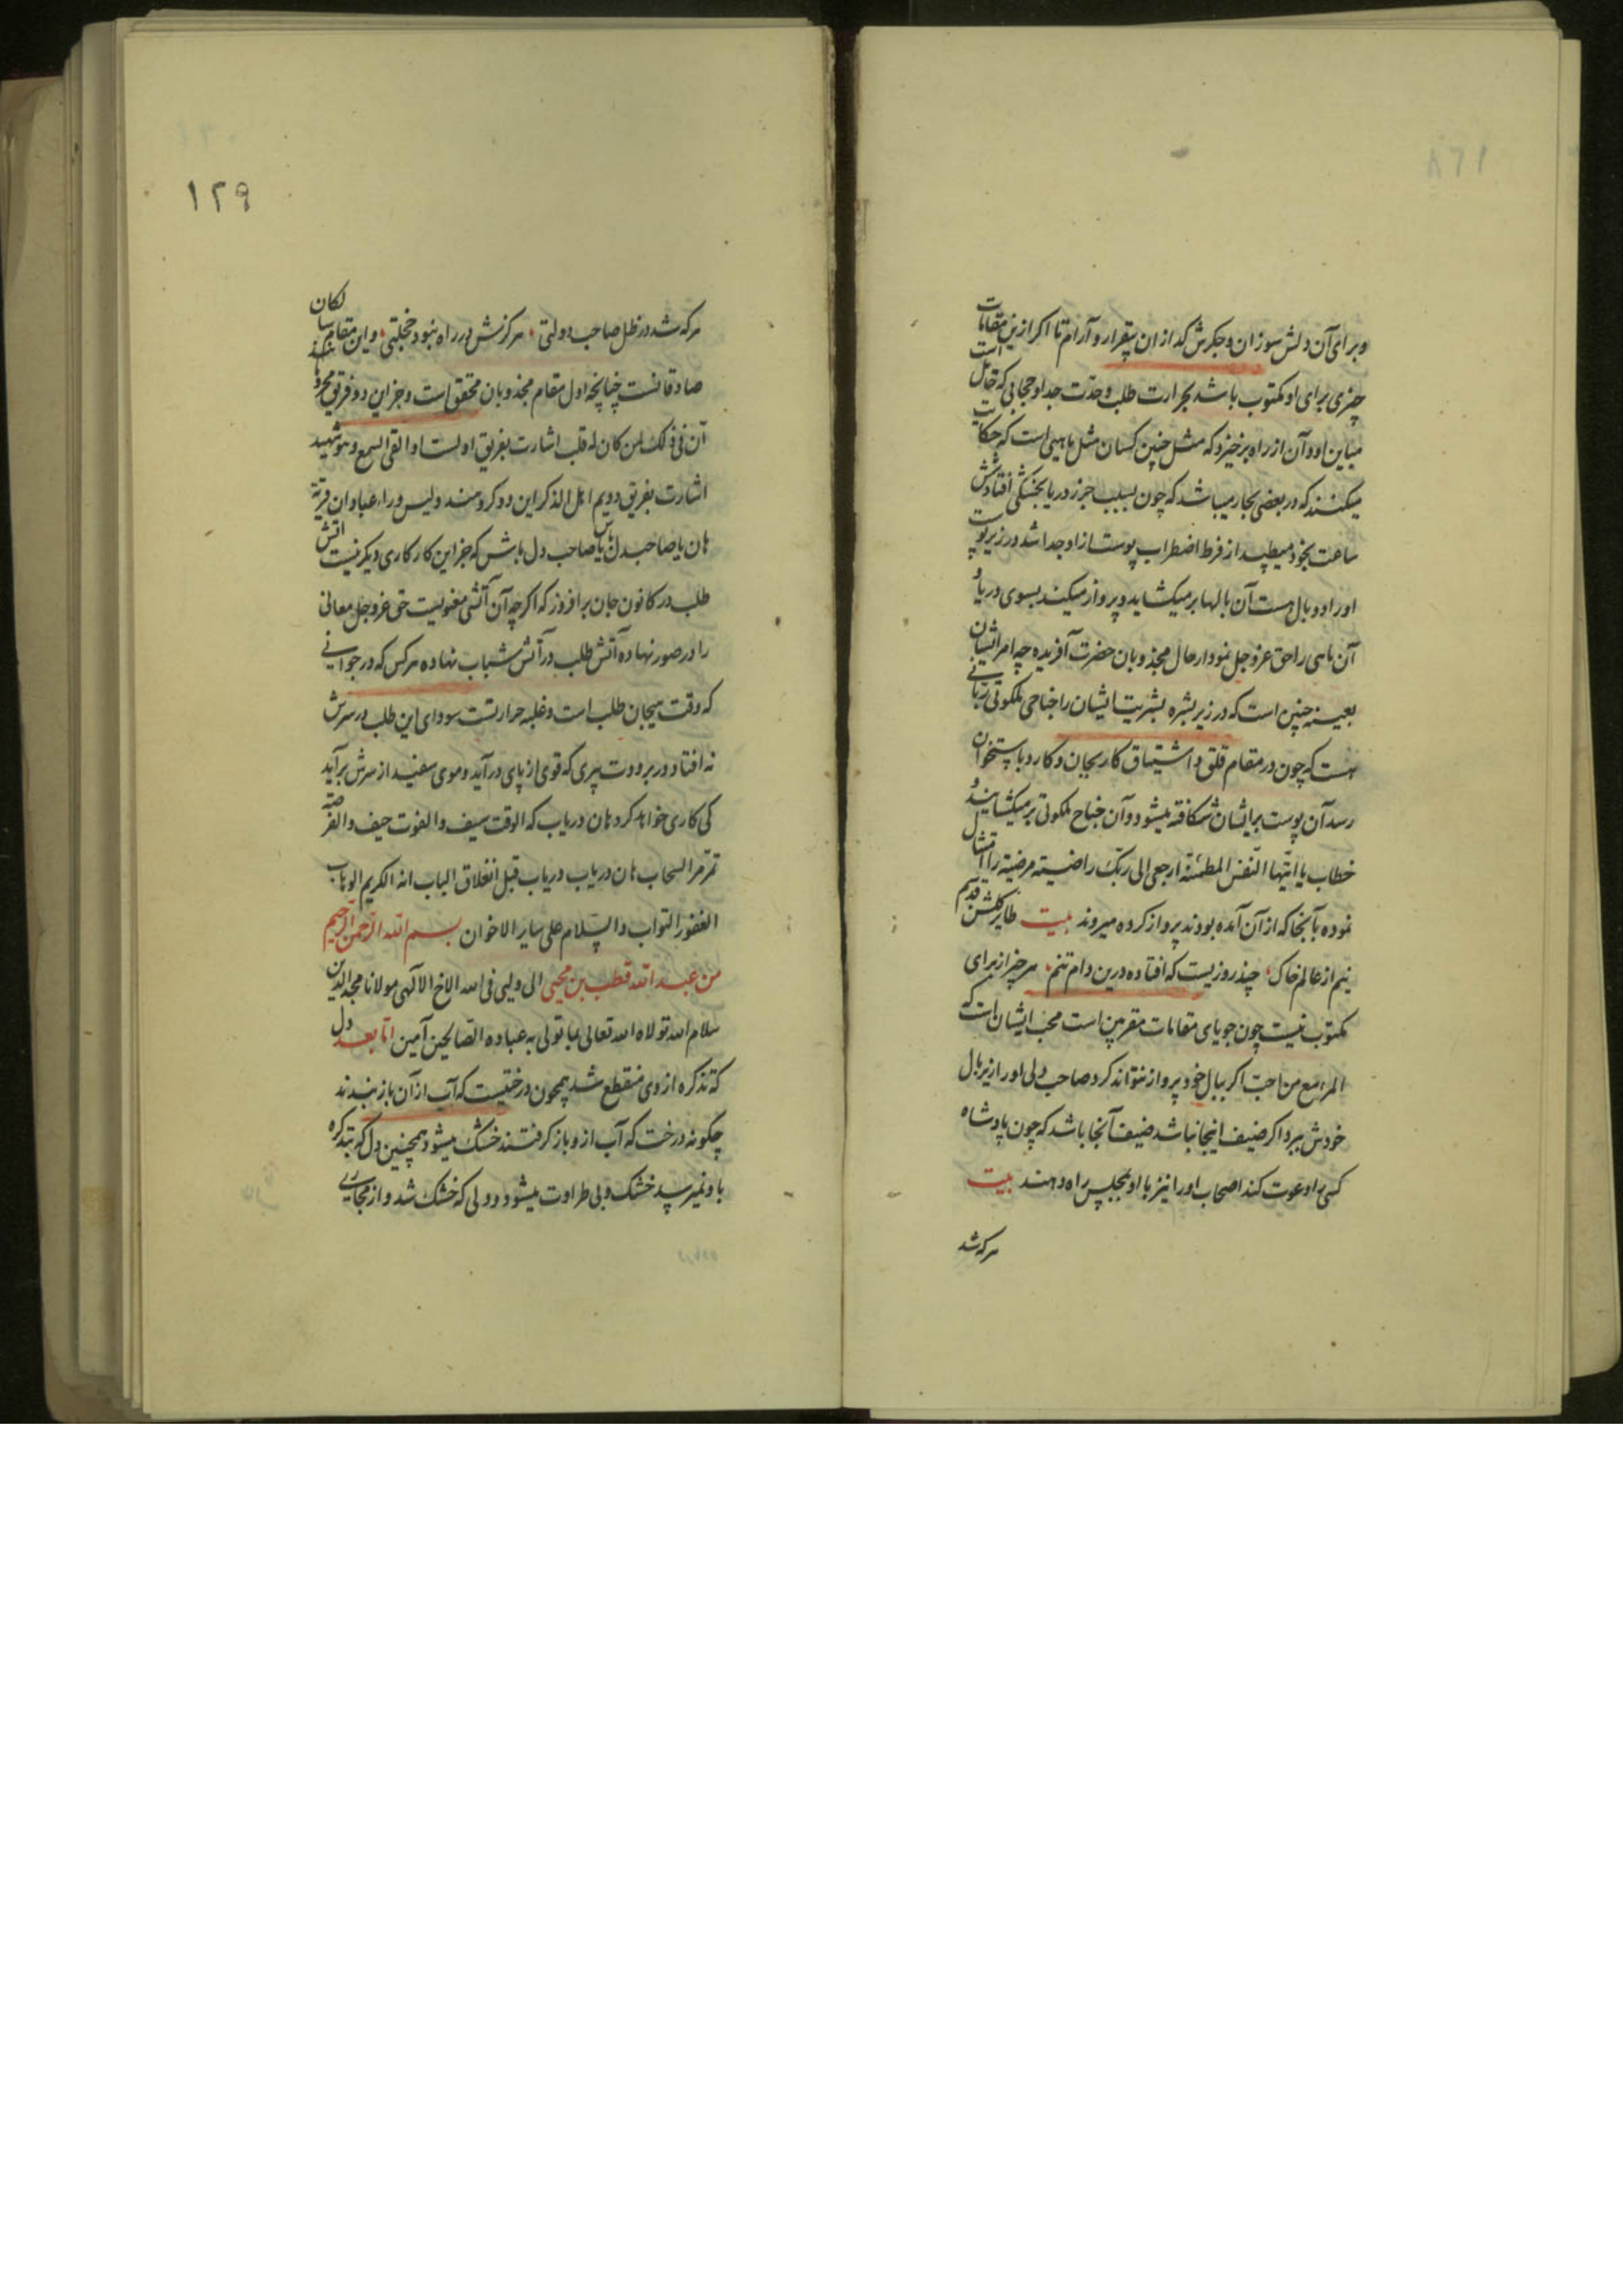 و برای آن دلش سوزان و جکرش کدازان بیقرار و آرام تا اکر ازین مقامات
چیزی برای او مکتوب باشد بحرارت طلب وحدّت جد او حجابی که حائل است
میاین او و آن از راه برخیزد که مثل چنین کسان مثل ماهیی است که حکایت
میکنند که در بعضی بحار میباشد که چون بسبب جزر دریا بخشکی افتادشش
ساعت بخود میطپد از فرط اضطراب پوست از او جدا شد و زیر پوست
او را دو بال هست آن بالها بر میکشاید و پرواز میکند بسوی دریا و
آن ماهی را حق عز و جل نمودار حال مجذوبان حضرت آفریده چه امر ایشان
بعینه چنین است که در زیر بشره بشریت ایشان را جناحی ملکوتی ربانی
هست که چون در مقام قلق و اشتیاق کار بجان و کارد باستخوان
رسد آن پوست بر ایشان شکافته میشود و آن جناح ملکوتی بر میکشایند و
خطاب یا ایتها النّفس المطمئنّة ارجعی الی ربّک راضیته مرضیّة را امتثال
نموده بآنجا که از آن آمده بودند پرواز کرده میروند بیت طایر کلشن قدسیم
نیم از عالم خاک چند روزیست که افتاده درین دام تنم هر چیز از برای
مکتوب نیست چون جویای مقامات مقربین است محب ایشان است که
المرء مع من احبّ اکر ببال خود پرواز نتواند کرد صاحب دلی او را زیر بال
خودش ببرد اکر ضیف اینجا نباشد ضیف آنجا باشد که چون پادشاه
کسی را دعوت کند اصحاب او را نیز با او بمجلس راه دهند بیت
هر که شد
۱۲۹
هر که شد در ظل صاحب دولتی هرکزش در راه نبود خجلتی و این مقام سالکان
صادقانست چنانچه اول مقام مجذوبان محقق است و جز این دو فریق
آن فی ذلک لمن کان له قلب اشارت بفریق اولست او القی السمع و هو شهید
اشارت بفریق دویم اهل الذکر این دو کروهند و لیس وراء عبادان قریة
هان یا صاحبدل باش یا صاحب دل باش که جز این کار کاری دیکر نیست اتش
طلب در کانون جان برافروز که اکر چه آن آتشی معنویست حق عز و جل معانی
را در صور نهاده آتش طلب در آتش شباب نهاده هر کس که در جوانی
که وقت هیجان طلب است و غلبه حرارتست سودای این طلب در سرش
نه افتاد در برودت پیری که قوی از پای در آید و موی سفید از سرش برآید
کی کاری خواهد کرد هان دریاب که الوقت سیف و الفوت حیف و الفرصة
تمرّ مرّ السحاب هان دریاب دریاب قبل انغلاق الباب انه الکریم الوهاب
الغفور التواب و السّلام علی سایر الاخوان بسم الله الرّحمن الرّحیم
من عبد الله قطب بن محیی الی ولیی فی الله الاخ الآلهی مولانا مجد الدین
سلام الله تولاه الله تعالی بما تولی به عباده الصالحین آمین امّا بعد دل
که تذکره از وی منقطع شد همچون درختیست که آب از آن باز بندند
چکونه درخت که آب ازو باز کرفتند خشک میشود همچنین دل که تذکره
باو نمیرسد خشک و بی طراوت میشود و دلی که خشک شد و از مجاری